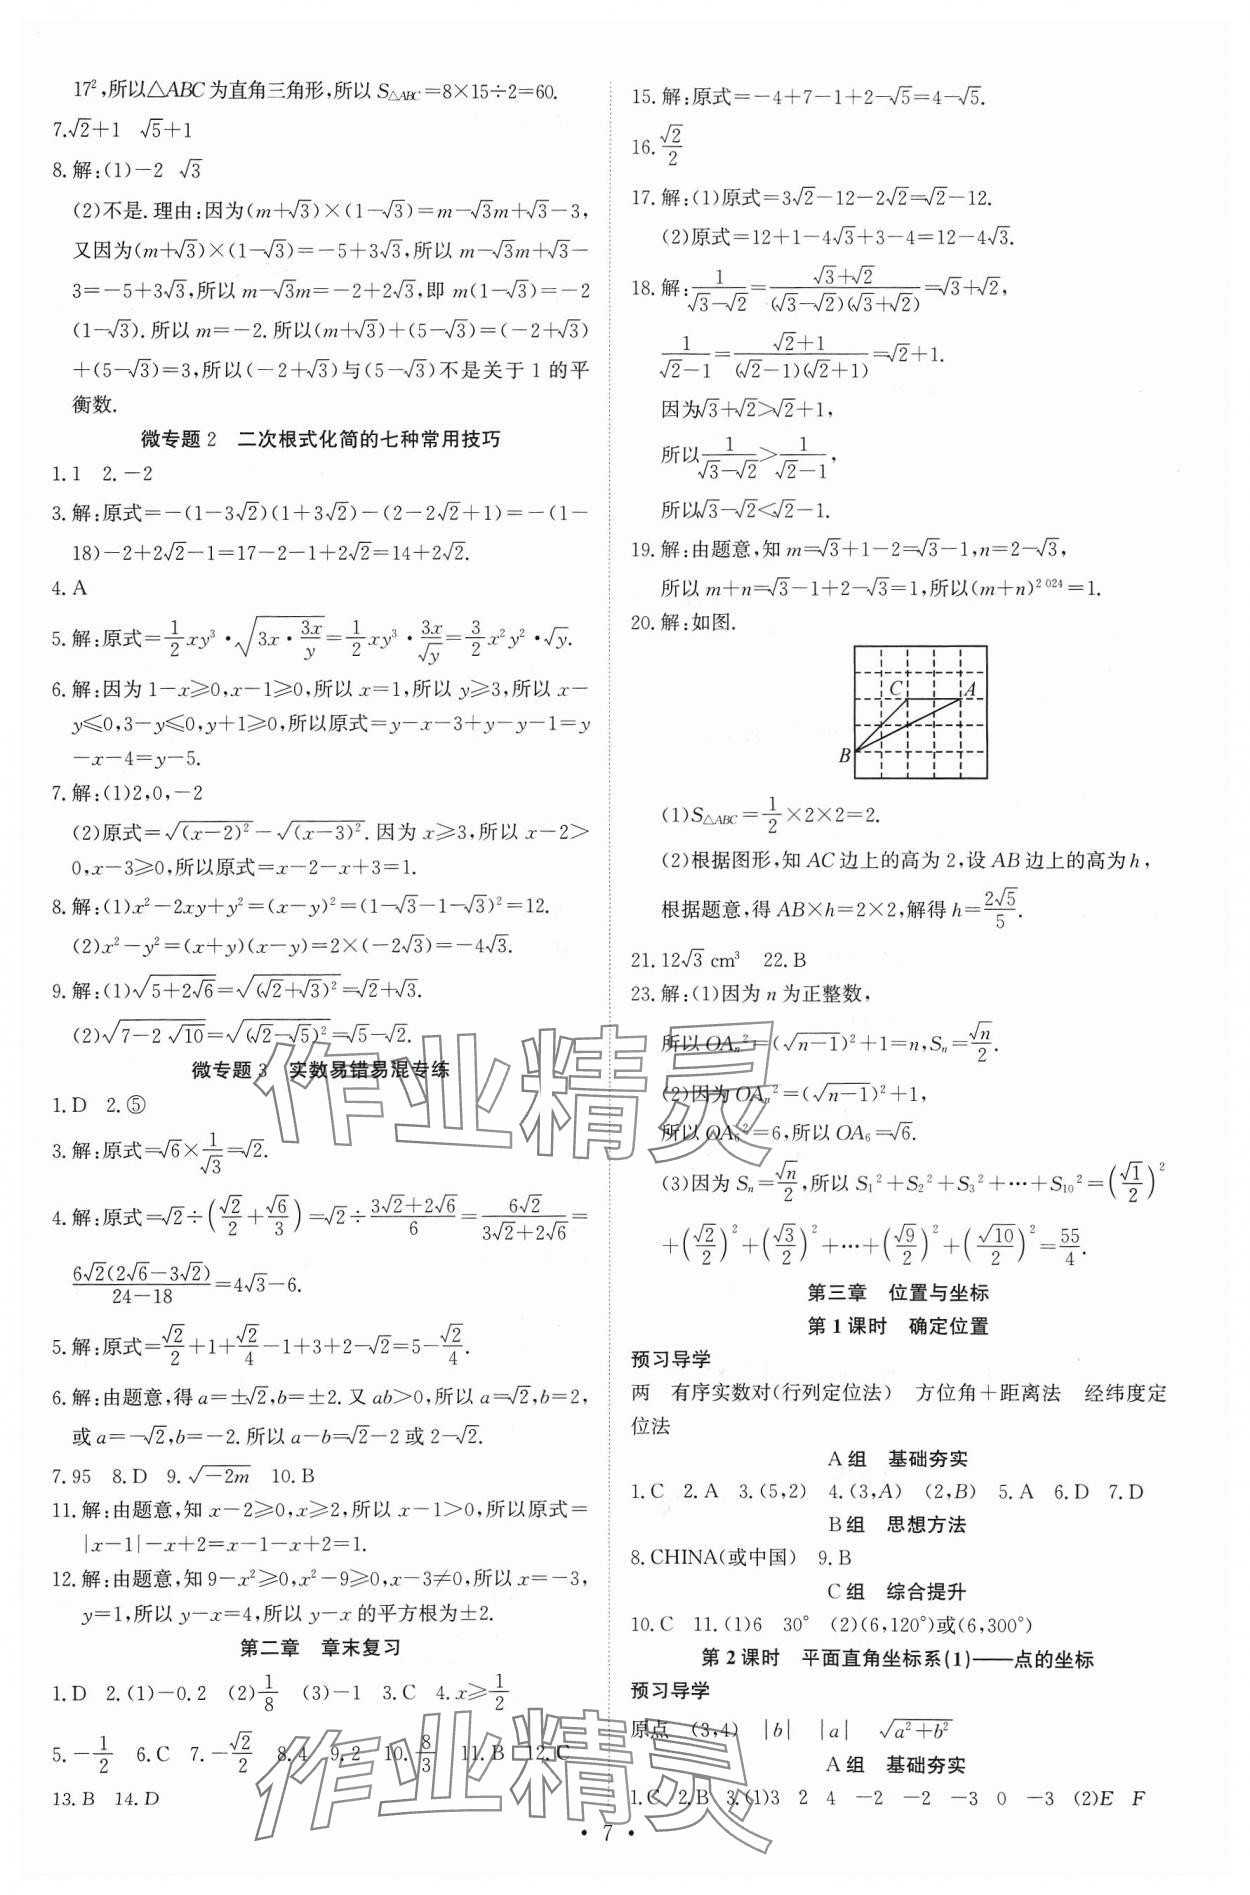 17²,所以△ABC为直角三角形,所以S△ABC=8×15÷2=60.
7.√2+1　√5+1
8.解:(1)-2　√3
(2)不是.理由:因为(m+√3)×(1-√3)=m-√3m+√3-3,
又因为(m+√3)×(1-√3)=-5+3√3,所以 m-√3m+√3-
3=-5+3√3,所以 m-√3m=-2+2√3,即 m(1-√3)=-2
(1-√3).所以 m=-2.所以(m+√3)+(5-√3)=(-2+√3)
+(5-√3)=3,所以(-2+√3)与(5-√3)不是关于 1 的平
衡数.
微专题 2　二次根式化简的七种常用技巧
1.1　2.-2
3.解:原式=-(1-3√2)(1+3√2)-(2-2√2+1)=-(1-
18)-2+2√2-1=17-2-1+2√2=14+2√2.
4.A
5.解:原式=1/2xy³·√(3x·3x/y)=1/2xy³·3x/√y=3/2x²y²·√y.
6.解:因为 1-x≥0,x-1≥0,所以 x=1,所以 y≥3,所以 x-
y≤0,3-y≤0,y+1≥0,所以原式=y-x-3+y-y-1=y
-x-4=y-5.
7.解:(1)2,0,-2
(2)原式=√(x-2)²-√(x-3)².因为 x≥3,所以 x-2>
0,x-3≥0,所以原式=x-2-x+3=1.
8.解:(1)x²-2xy+y²=(x-y)²=(1-√3-1-√3)²=12.
(2)x²-y²=(x+y)(x-y)=2×(-2√3)=-4√3.
9.解:(1)√(5+2√6)=√(√2+√3)²=√2+√3.
(2)√(7-2√10)=√(√2-√5)²=√5-√2.
微专题 3　实数易错易混专练
1.D　2.⑤
3.解:原式=√6×1/√3=√2.
4.解:原式=√2÷(√2/2+√6/3)=√2÷(3√2+2√6)/6=6√2/(3√2+2√6)=
6√2(2√6-3√2)/(24-18)=4√3-6.
5.解:原式=√2/2+1+√2/4-1+3+2-√2=5-√2/4.
6.解:由题意,得 a=±√2,b=±2.又 ab>0,所以 a=√2,b=2,
或 a=-√2,b=-2.所以 a-b=√2-2 或 2-√2.
7.95　8.D　9.√(-2m)　10.B
11.解:由题意,知 x-2≥0,x≥2,所以 x-1>0,所以原式=
|x-1|-x+2=x-1-x+2=1.
12.解:由题意,知 9-x²≥0,x²-9≥0,x-3≠0,所以 x=-3,
y=1,所以 y-x=4,所以 y-x 的平方根为±2.
第二章　章末复习
1.D　2.(1)-0.2　(2)1/8　(3)-1　3.C　4.x≥1/2
5.-1/2　6.C　7.-√2/2　8.4　9.2　10.8/3　11.B　12.C
13.B　14.D
15.解:原式=-4+7-1+2-√5=4-√5.
16.√2/2
17.解:(1)原式=3√2-12-2√2=√2-12.
(2)原式=12+1-4√3+3-4=12-4√3.
18.解:1/(√3-√2)=(√3+√2)/((√3-√2)(√3+√2))=√3+√2,
1/(√2-1)=(√2+1)/((√2-1)(√2+1))=√2+1.
因为√3+√2>√2+1,
所以1/(√3-√2)>1/(√2-1),
所以√3-√2<√2-1.
19.解:由题意,知 m=√3+1-2=√3-1,n=2-√3,
所以 m+n=√3-1+2-√3=1,所以(m+n)²⁰²⁴=1.
20.解:如图.
C　A
B
(1)S△ABC=1/2×2×2=2.
(2)根据图形,知 AC 边上的高为 2,设 AB 边上的高为 h,
根据题意,得 AB×h=2×2,解得 h=2√5/5.
21.12√3 cm³　22.B
23.解:(1)因为 n 为正整数,
所以 OAₙ²=(√(n-1))²+1=n,Sₙ=√n/2.
(2)因为 OAₙ²=(√(n-1))²+1,
所以 OA₆²=6,所以 OA₆=√6.
(3)因为 Sₙ=√n/2,所以 S₁²+S₂²+S₃²+…+S₁₀²=(√1/2)²
+(√2/2)²+(√3/2)²+…+(√9/2)²+(√10/2)²=55/4.
第三章　位置与坐标
第 1 课时　确定位置
预习导学
两　有序实数对(行列定位法)　方位角+距离法　经纬度定
位法
A 组　基础夯实
1.C　2.A　3.(5,2)　4.(3,A)　(2,B)　5.A　6.D　7.D
B 组　思想方法
8.CHINA(或中国)　9.B
C 组　综合提升
10.C　11.(1)6　30°　(2)(6,120°)或(6,300°)
第 2 课时　平面直角坐标系(1)——点的坐标
预习导学
原点　(3,4)　|b|　|a|　√(a²+b²)
A 组　基础夯实
1.C　2.B　3.(1)3　2　4　-2　-2　-3　0　-3　(2)E　F
• 7 •
作业精灵
作业精灵